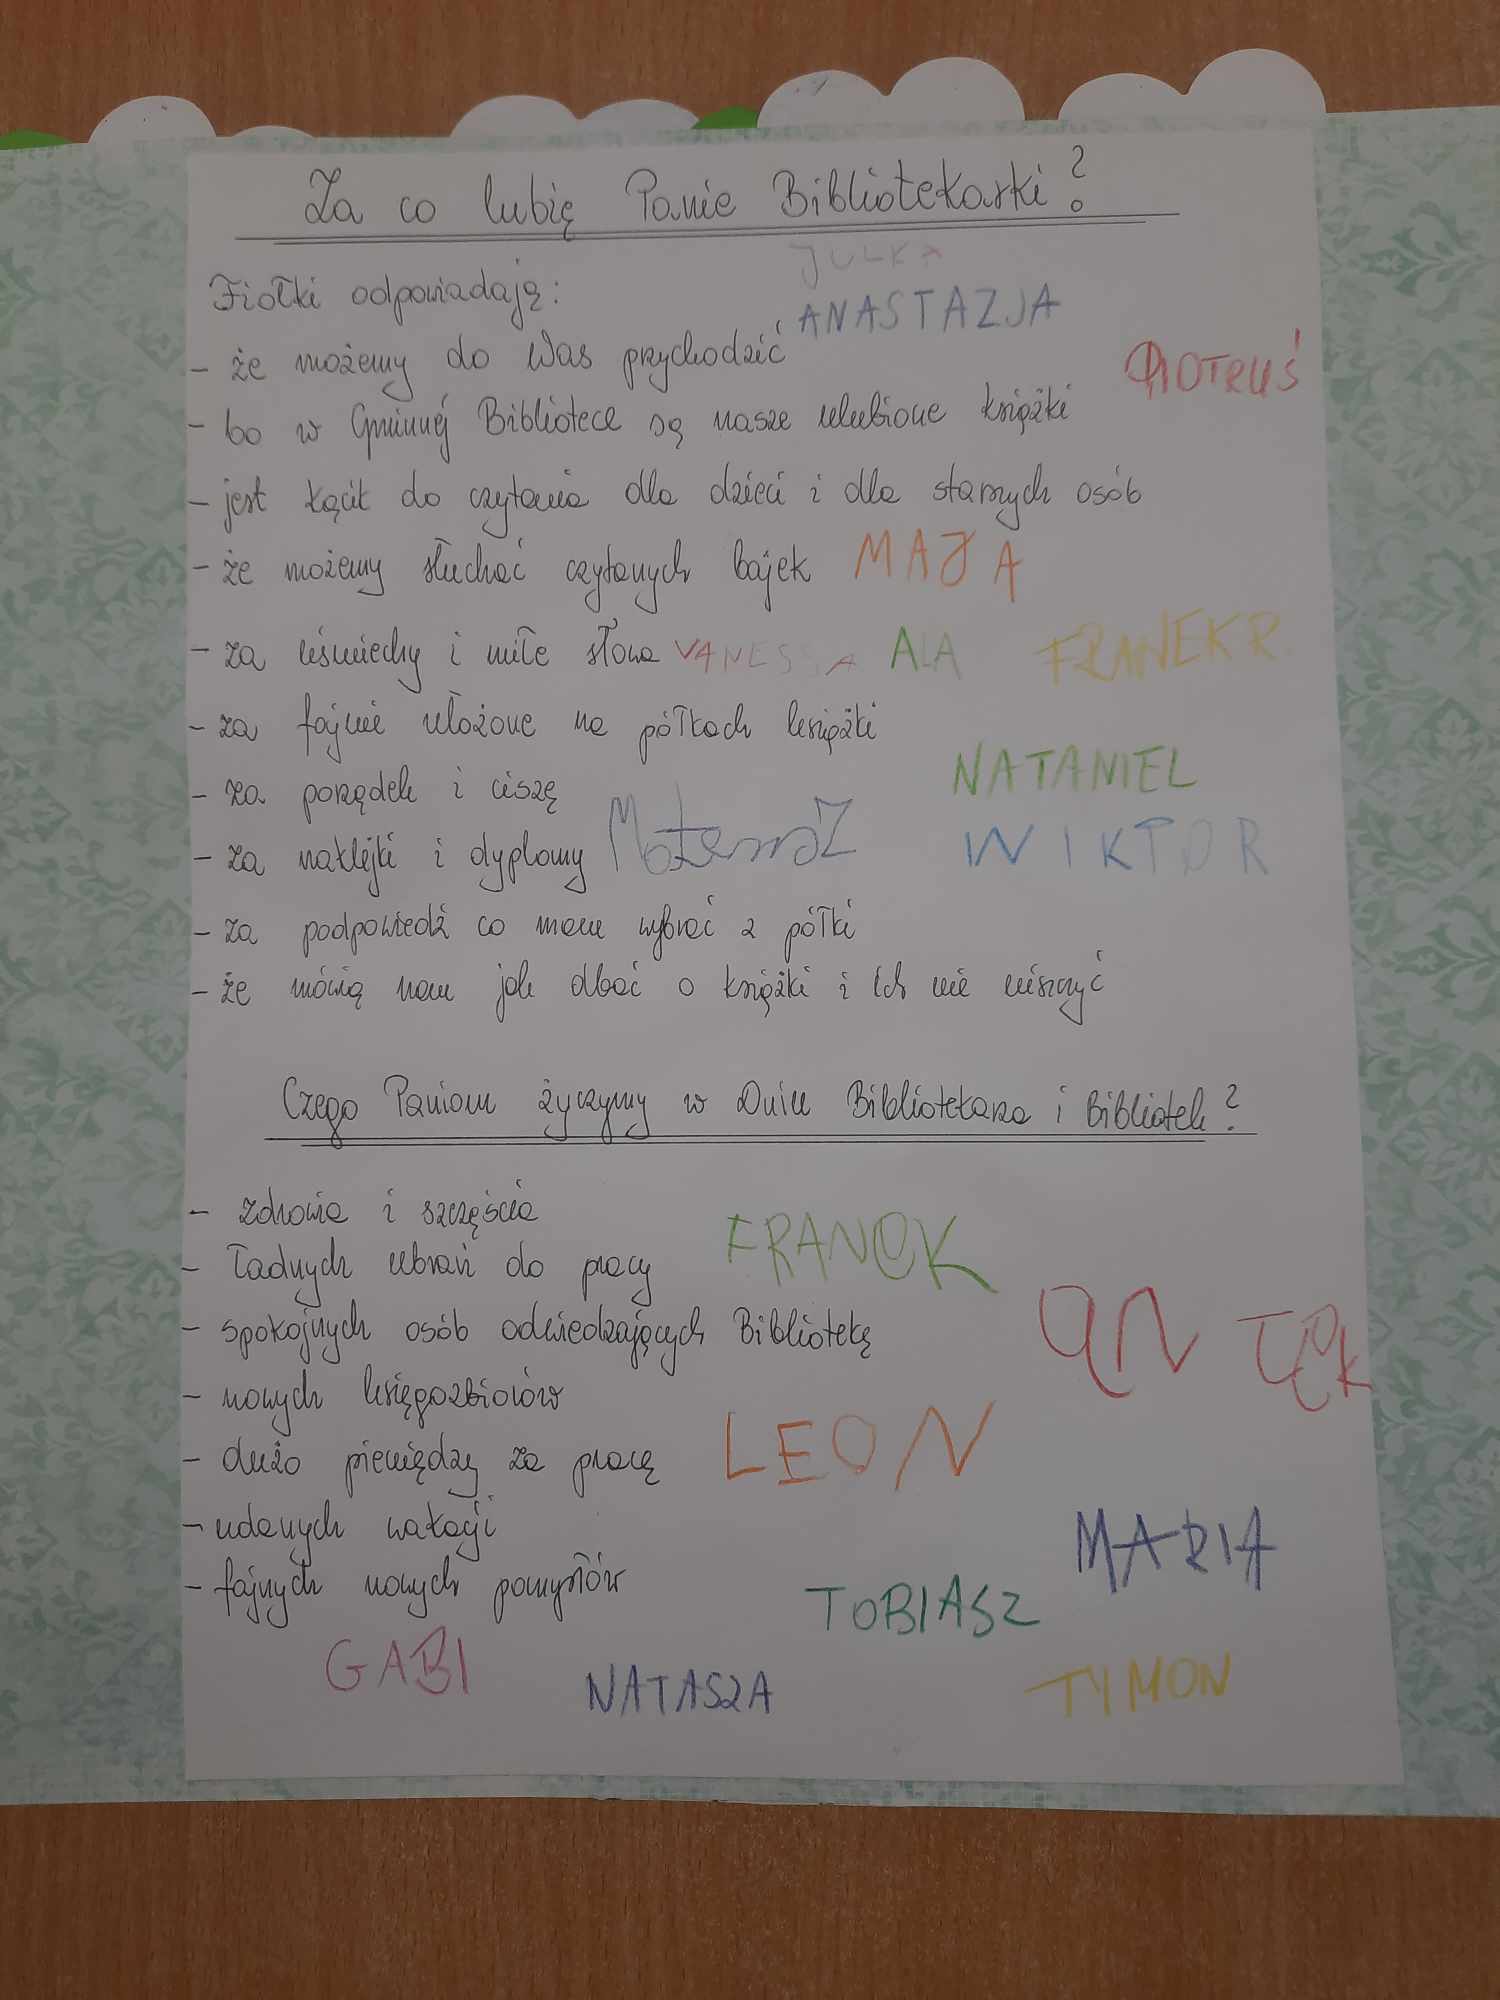 Za co lubię Panie Bibliotekarki?
JULKA
Fiołki odpowiadają:
ANASTAZJA
- że możemy do Was przychodzić
PIOTRUŚ
- bo w Gminnej Bibliotece są nasze ulubione książki
- jest kącik do czytania dla dzieci i dla starszych osób
- że możemy słuchać czytanych bajek MAJA
- za uśmiechy i miłe słowa VANESSA ALA FRANEK R.
- za fajnie ułożone na półkach książki
NATANIEL
- za porządek i ciszę
- za naklejki i dyplomy
WIKTOR
- za podpowiedź co mam wybrać z półki
- że mówią nam jak dbać o książki i ich nie niszczyć
Czego Paniom życzymy w Dniu Bibliotekarza i Bibliotek?
- zdrowia i szczęścia
FRANEK
- ładnych ubrań do pracy
- spokojnych osób odwiedzających Bibliotekę
ANTEK
- nowych księgozbiorów
- dużo pieniędzy za pracę LEON
- udanych wakacji
MARIA
- fajnych nowych pomysłów
TOBIASZ
GABI NATASZA TYMON